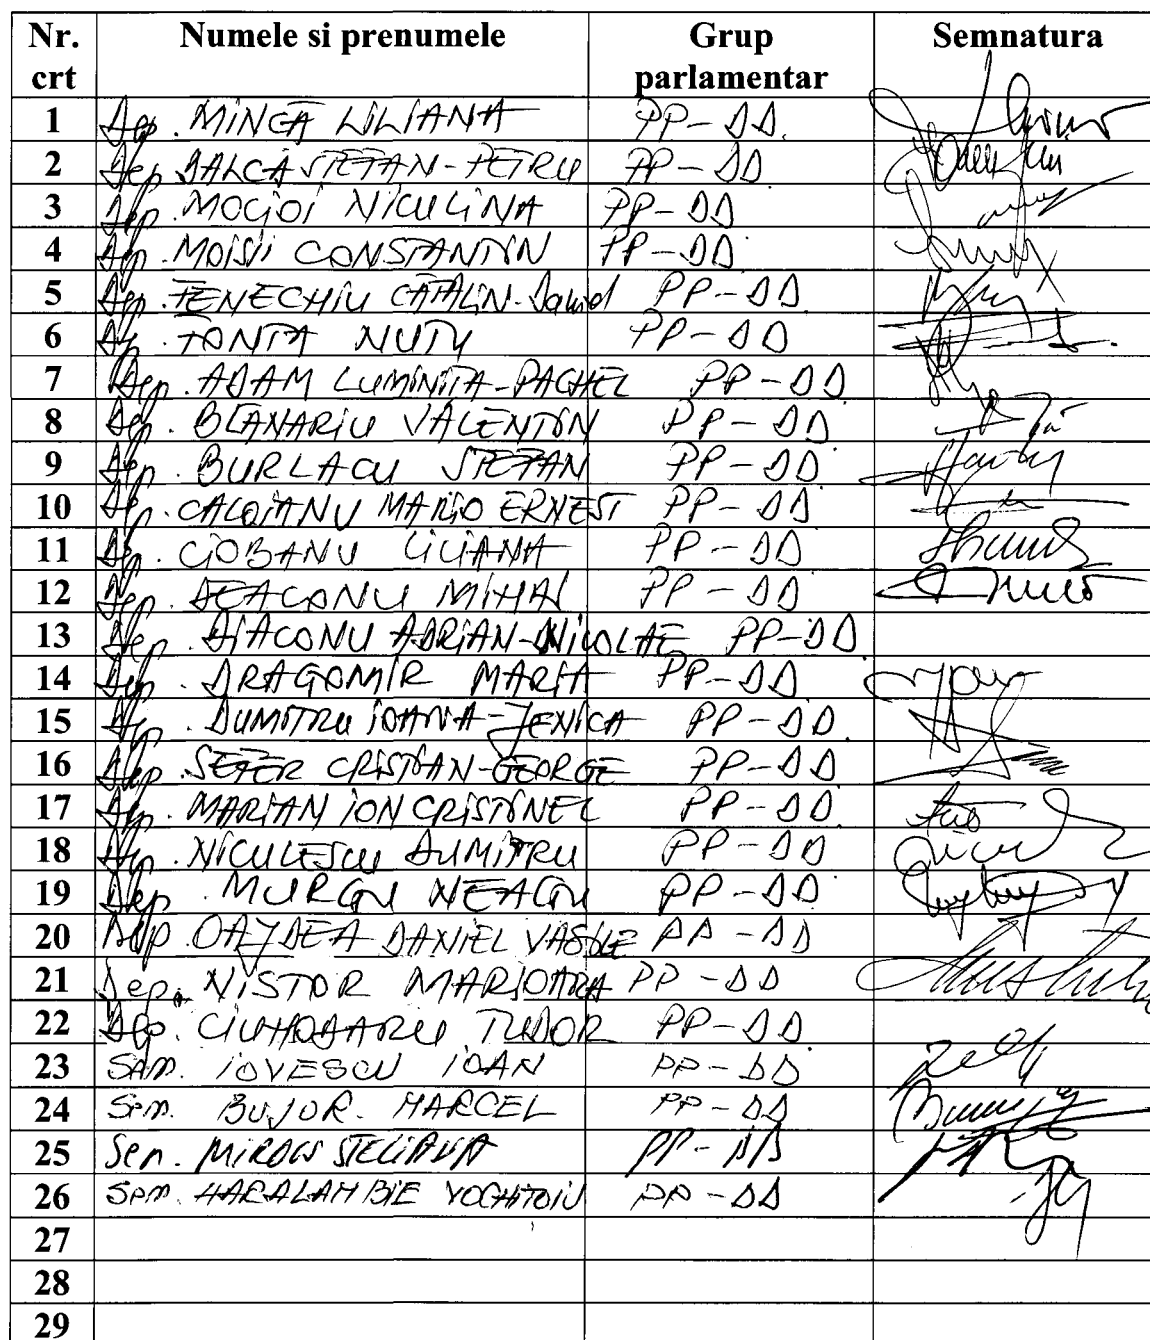 Nr. crt Numele si prenumele Grup parlamentar Semnatura
1 Dep. MINCĂ LILIANA PP-DD.
2 Dep. BALCĂ STEFAN-PETRU PP-DD
3 Dep. MOCIOI NICULINA PP-DD
4 Dep. MOISII CONSTANTIN PP-DD
5 Dep. FENECHIU CĂTĂLIN-David PP-DD
6 Dep. FONTA NUTU PP-DD
7 Dep. ADAM LUMINITA-RACHEL PP-DD
8 Dep. BLANARIU VALENTIN PP-DD
9 Dep. BURLACU STEFAN PP-DD
10 Dep. CALOIANU MARIO ERNEST PP-DD
11 Dep. CIOBANU LILIANA PP-DD
12 Dep. DEACONU MIHAI PP-DD
13 Dep. DIACONU ADRIAN-NICOLAE PP-DD
14 Dep. DRAGOMIR MARIA PP-DD
15 Dep. DUMITRU IOANA-JENICA PP-DD
16 Dep. SEFER CRISTIAN-GEORGE PP-DD
17 Dep. MARIAN ION CRISTINEL PP-DD
18 Dep. NICULESCU DUMITRU PP-DD
19 Dep. MURGU NEAGU PP-DD
20 Dep. OAJDEA DANIEL VASILE PP-DD
21 Dep. NISTOR MARIOARA PP-DD
22 Dep. CIUHODARIU TUDOR PP-DD
23 Sen. IOVESCU IOAN PP-DD
24 Sen. BUJOR. MARCEL PP-DD
25 Sen. MIRON STELIANA PP-DD
26 Sen. HARALAMBIE VOCHITOIU PP-DD
27
28
29